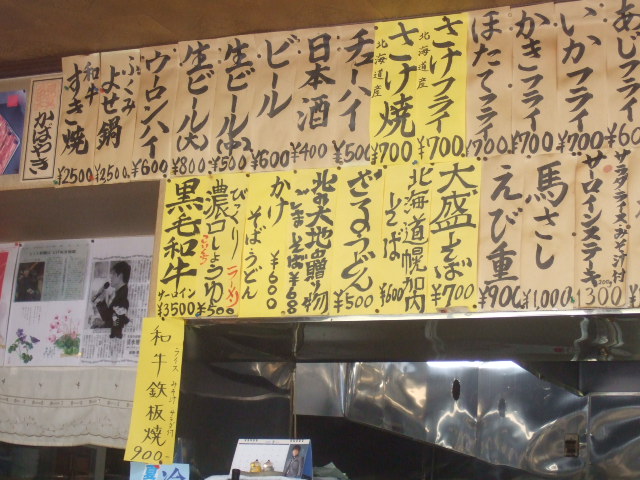 あじフライ
¥600
いかフライ
¥700
かきフライ
¥700
ほたてフライ
¥700
北海道産
さけフライ
¥700
北海道産
さけ焼
¥700
チューハイ
¥500
日本酒
¥400
ビール
¥600
生ビール(中)
¥500
生ビール(大)
¥800
ウーロンハイ
¥600
ふくみ
よせ鍋
¥2500
和牛
すき焼
¥2500
かばやき
サラダライスみそ汁付
サーロインステーキ
1300
馬さし
¥1,000
えび重
¥900
大盛そば
¥700
北海道幌加内
そば
¥600
ざるうどん
¥500
北の大地の贈り物
かけ
そばうどん
¥600
びっくりラーメン
濃口しょうゆ
¥500
黒毛和牛
サーロイン
¥3500
和牛鉄板焼
900